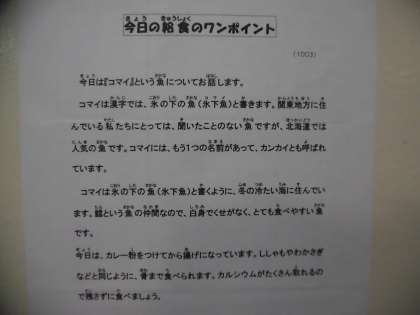 今日の給食のワンポイント
(1003)
今日は『コマイ』という魚についてお話します。
コマイは漢字では、氷の下の魚(氷下魚)と書きます。関東地方に住
んでいる私たちにとっては、聞いたことのない魚ですが、北海道では
人気の魚です。コマイには、もう1つの名前があって、カンカイとも呼ばれ
ています。
コマイは氷の下の魚(氷下魚)と書くように、冬の冷たい海に住んでい
ます。鱈という魚の仲間なので、白身でくせがなく、とても食べやすい魚
です。
今日は、カレー粉をつけてから揚げになっています。ししゃもやわかさぎ
などと同じように、骨まで食べられます。カルシウムがたくさん取れるの
で残さずに食べましょう。